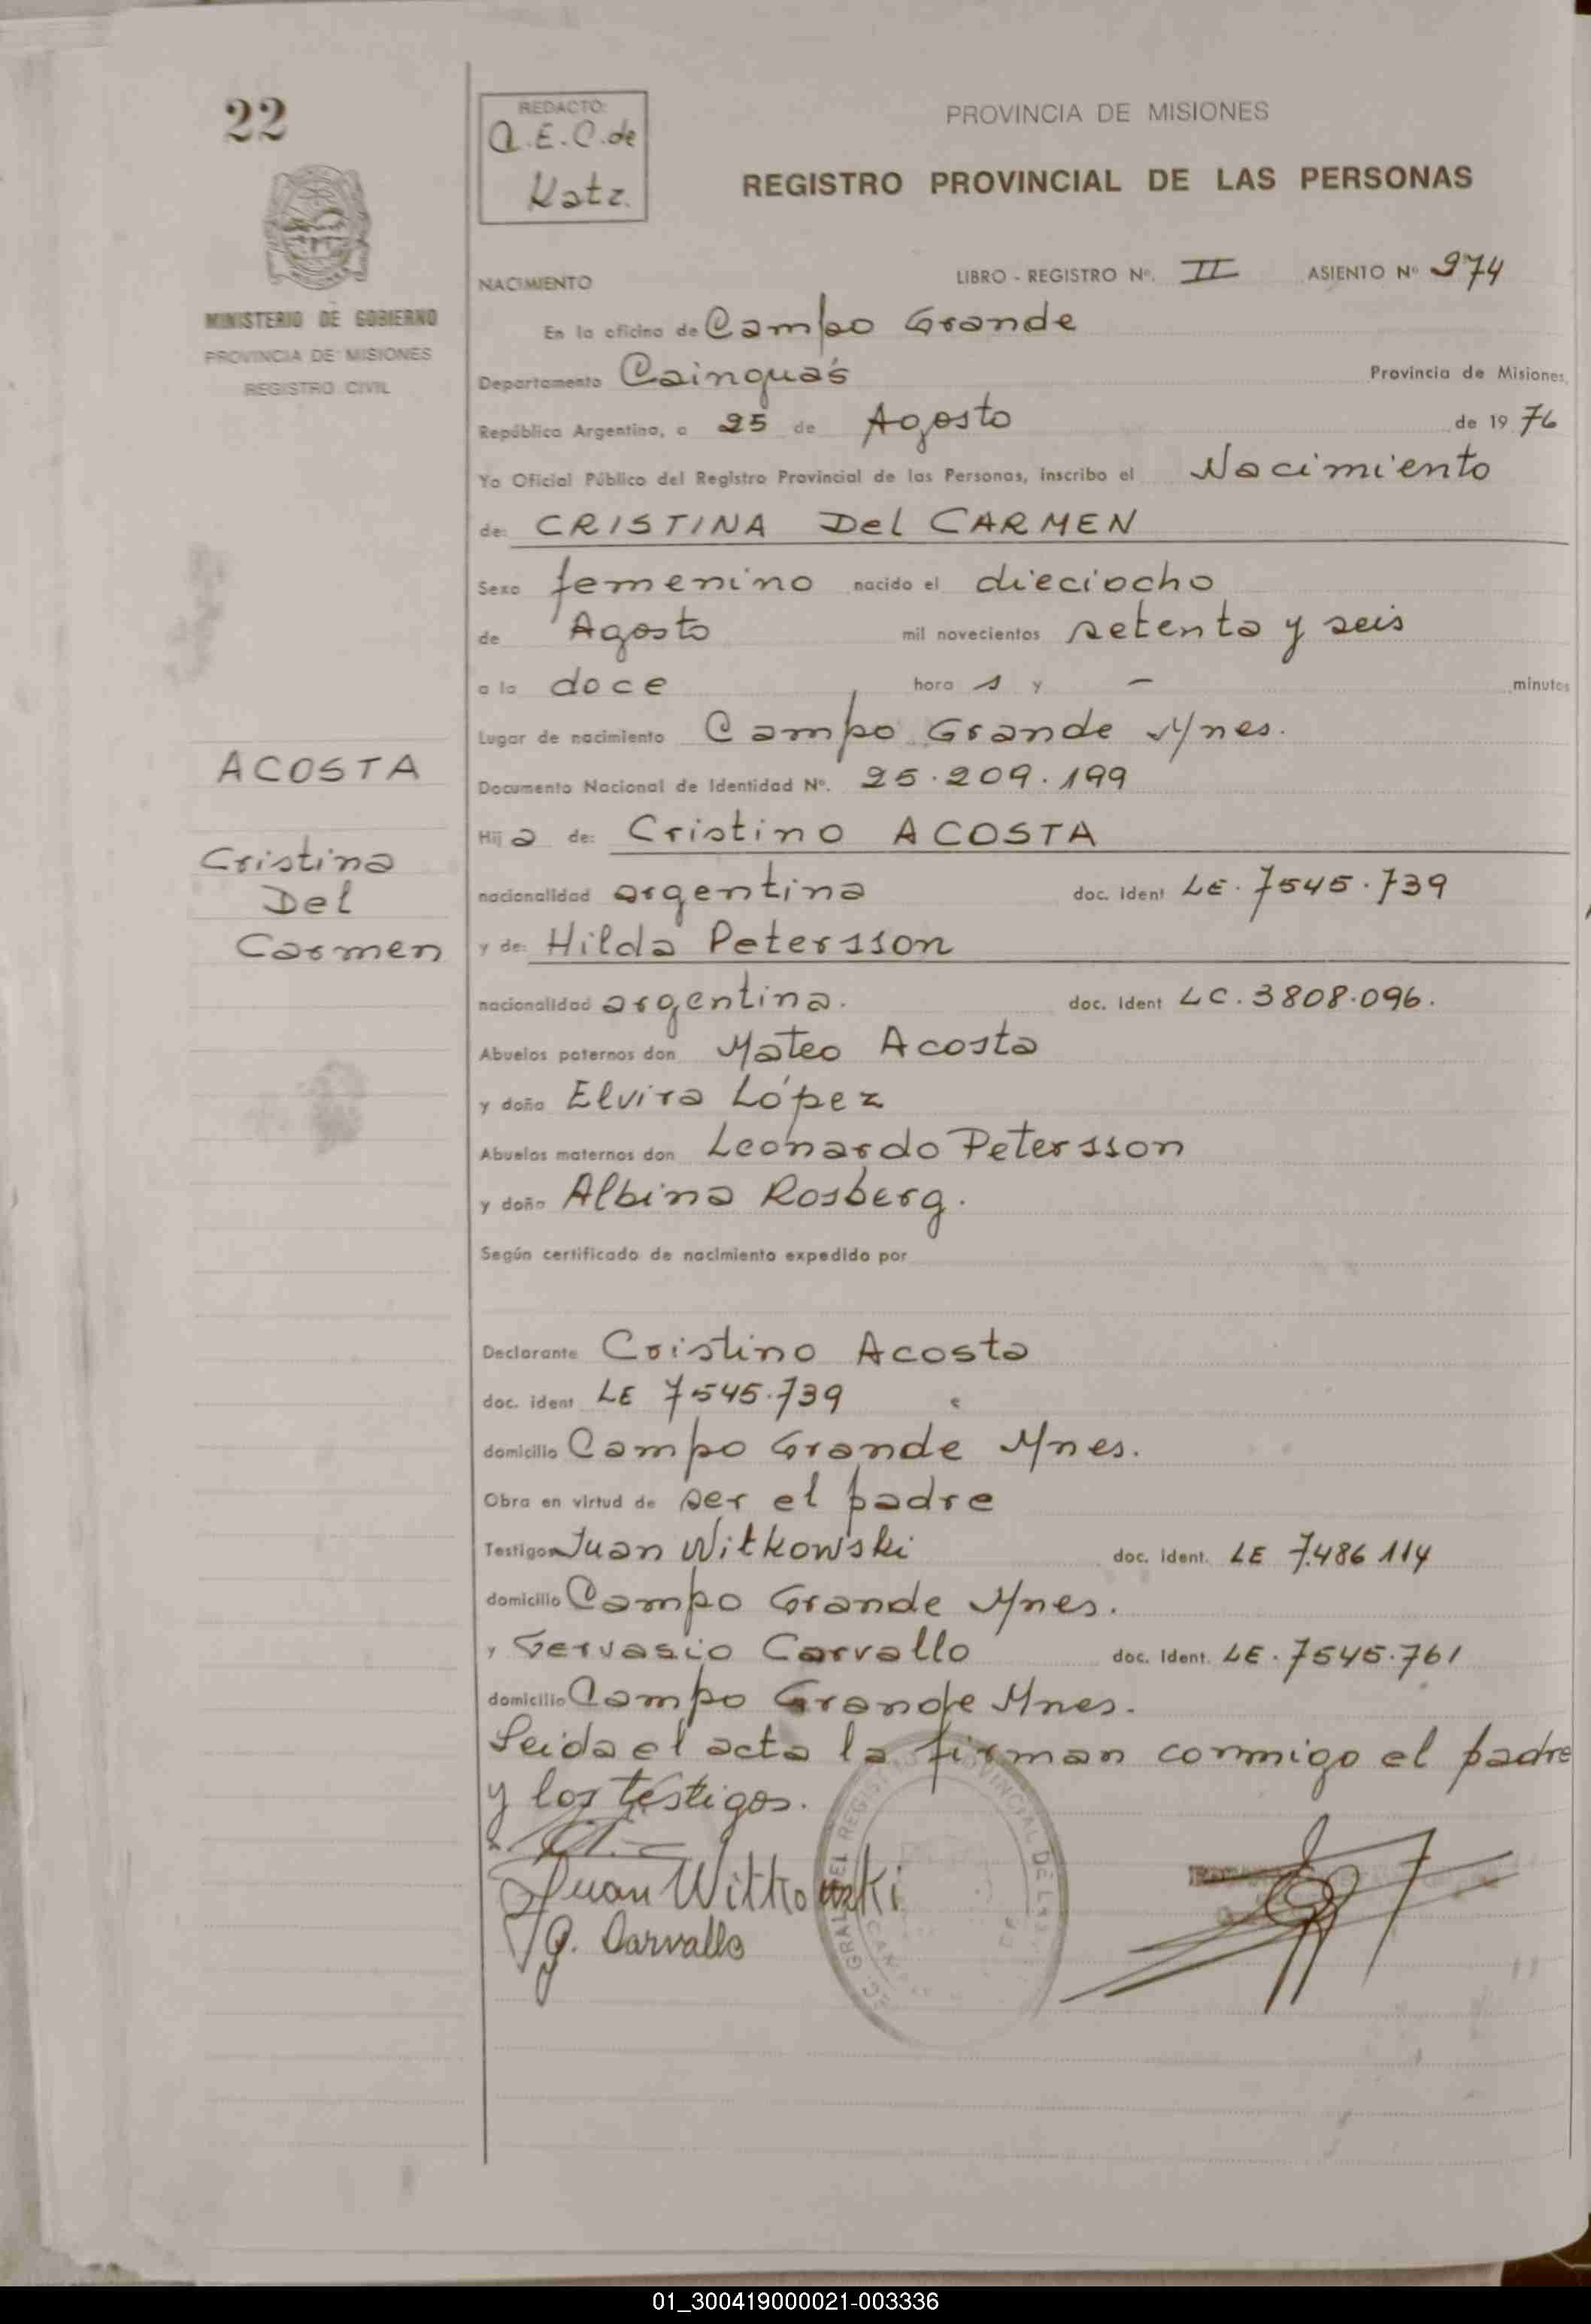 22
REDACTO:
A.E.C. de
Katz.
PROVINCIA DE MISIONES
REGISTRO PROVINCIAL DE LAS PERSONAS
MINISTERIO DE GOBIERNO
PROVINCIA DE MISIONES
REGISTRO CIVIL
NACIMIENTO
LIBRO - REGISTRO Nº. II ASIENTO Nº 974
En la oficina de Campo Grande
Departamento Cainguás Provincia de Misiones,
República Argentina, a 25 de Agosto de 1976
Yo Oficial Público del Registro Provincial de las Personas, inscribo el Nacimiento
de: CRISTINA Del CARMEN
Sexo femenino nacido el dieciocho
de Agosto mil novecientos setenta y seis
a la doce hora s y — minutos
Lugar de nacimiento Campo Grande Mnes.
Documento Nacional de Identidad Nº. 25.209.199
ACOSTA
Cristina
Del
Carmen
Hija de: Cristino ACOSTA
nacionalidad argentina doc. ident LE. 7545.739
y de: Hilda Petersson
nacionalidad argentina. doc. ident LC. 3808.096.
Abuelos paternos don Mateo Acosta
y doña Elvira López
Abuelos maternos don Leonardo Petersson
y doña Albina Rosberg.
Según certificado de nacimiento expedido por
Declarante Cristino Acosta
doc. ident LE 7545.739
domicilio Campo Grande Mnes.
Obra en virtud de ser el padre
Testigos Juan Witkowski doc. ident. LE 7.486 114
domicilio Campo Grande Mnes.
y Gervasio Carvallo doc. ident. LE. 7545.761
domicilio Campo Grande Mnes.
Leida el acta la firman conmigo el padre
y los testigos.
Juan Witkowski
G. Carvallo
GRAL DEL REGISTRO PROVINCIAL DE LAS
01_300419000021-003336